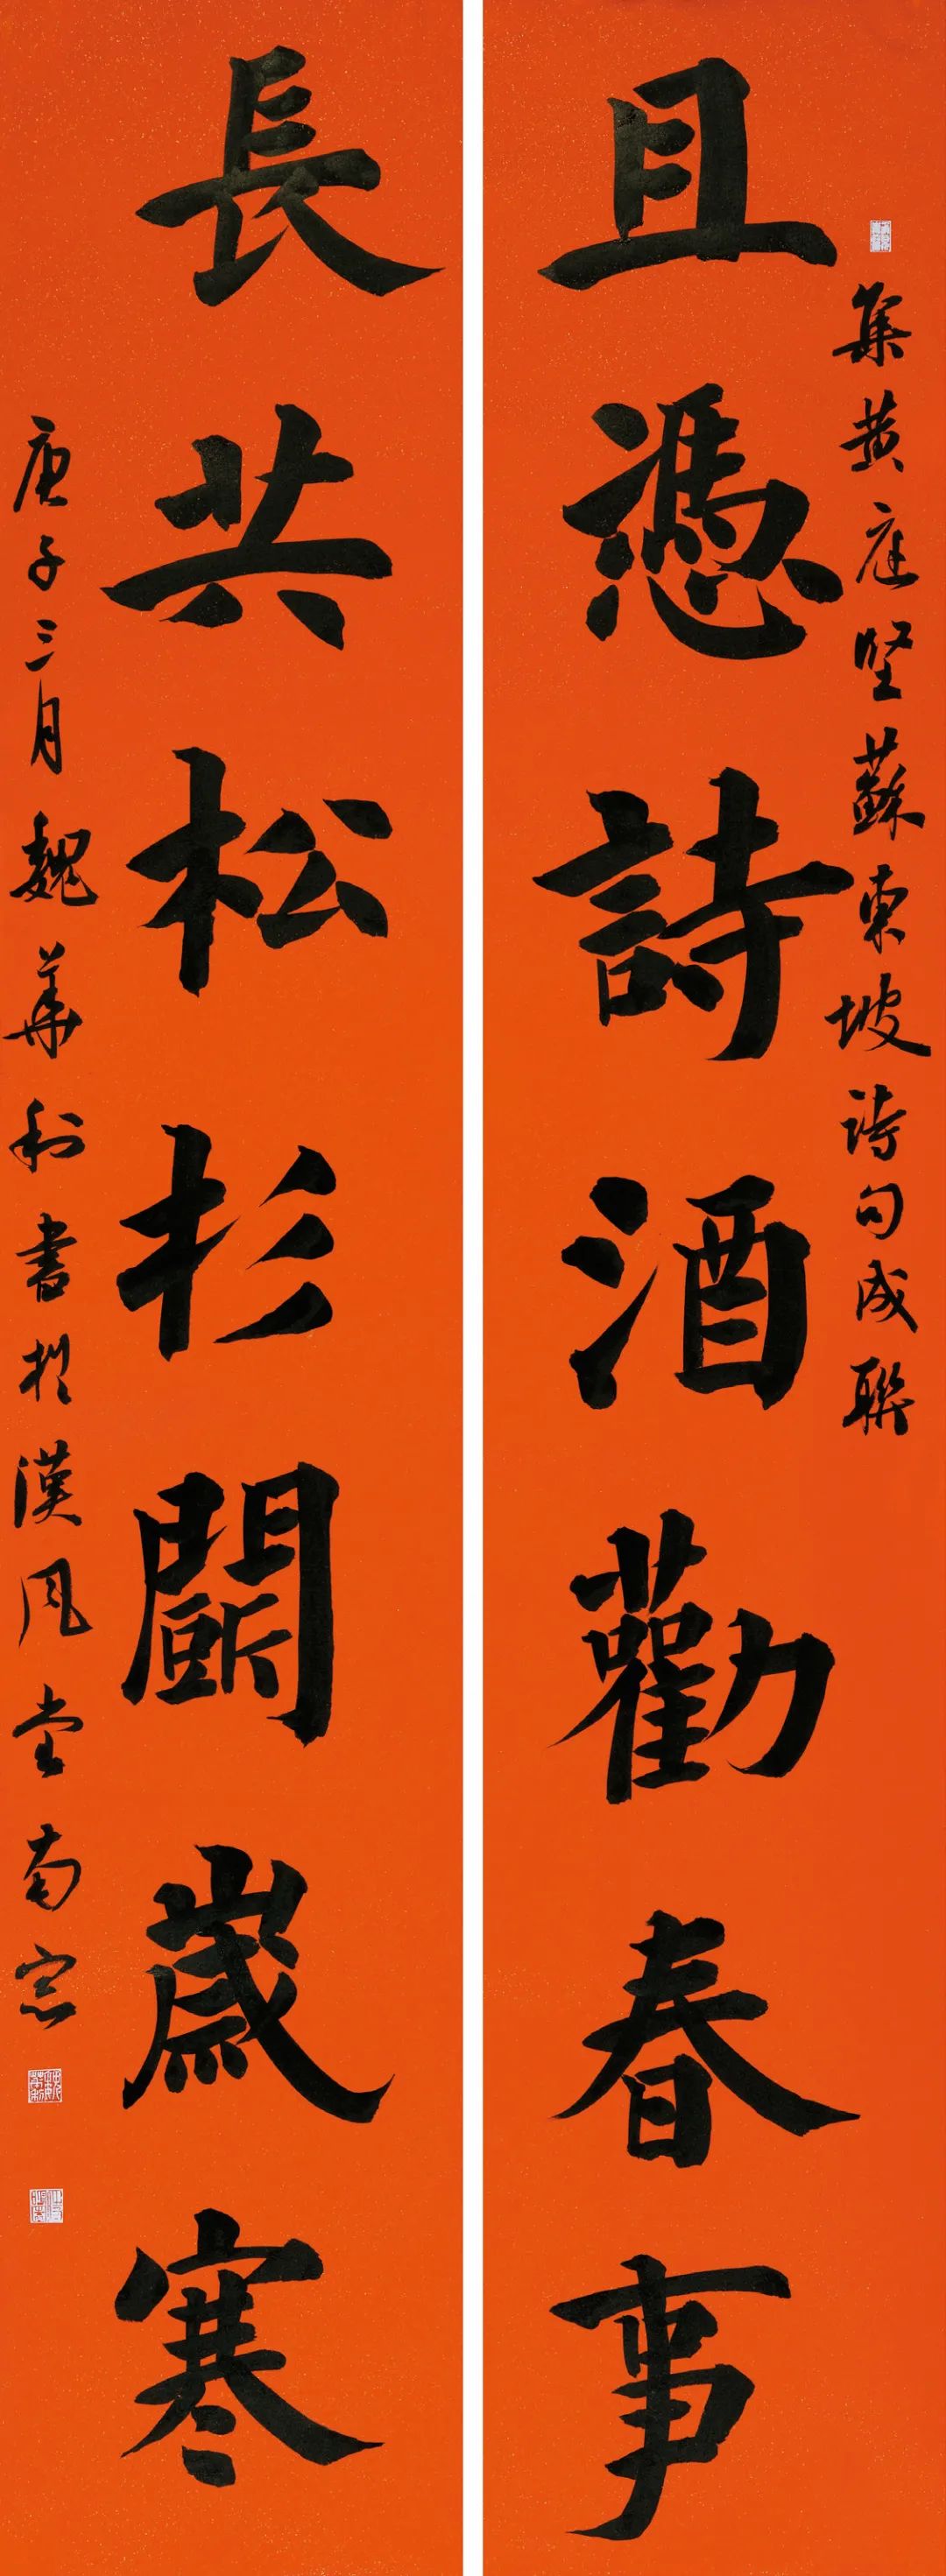 集黄庭坚蘇東坡詩句成聯
且憑詩酒勸春事
長共松杉鬭歲寒
庚子三月魏華利書於漢风堂南窓